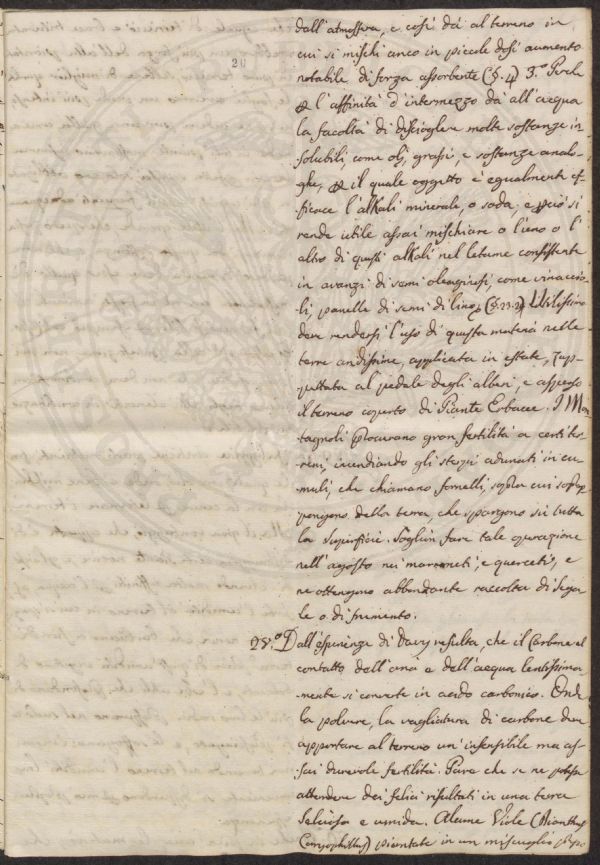 20
dall'atmosfera, e così dà al terreno in
cui si mischi anco in piccole dosi aumento
notabile di forza assorbente (§. 4) 3.º Perche
l'affinità d'intermezzo dà all'acqua
la facoltà di disciogliere molte sostanze in-
solubili, come olj, grassi, e sostanze analo-
ghe, il quale oggetto è egualmente ef-
ficace l'alkali minerale, o soda, e perciò si
rende utile assai mischiare o l'uno o l'
altro di questi alkali nel letame consistente
in avanzi di semi oleaginosi, come vinaccio-
li, panelle di semi di lino (§. 23. 24) Utilissimo
deve rendersi l'uso di questa materia nelle
terre aridissime, applicata in estate, zap-
pettata al pedale degli alberi, e asperso
il terreno coperto di Piante Erbacee. I Mon-
tagnoli procurano gran fertilità a certi ter-
reni, incendiando gli sterpi adunati in cu-
muli, che chiamano fornelli, sopra cui soprap-
pongono della terra che spargono su tutta
la superficie. Soglion fare tale operazione
nell'agosto nei marroneti, e querceti, e
ne ottengono abbondante raccolta di Sega-
le o di frumento.
28.º Dall'esperienze di Davy resulta, che il Carbone al
contatto dell'aria e dell'acqua lentissima-
mente si converte in acido carbonico. Onde
la polvere, la vagliatura di carbone deve
apportare al terreno un'insensibile ma as-
sai durevole fertilità. Pare che se ne possa
attendere dei felici risultati in una terra
Selciosa e umida. Alcune Viole (Dianthus
Caryophillus) piantate in un miscuglio